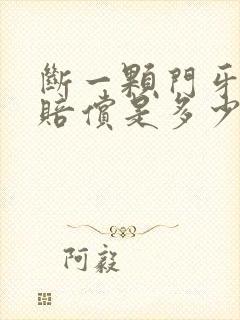 斷一顆門牙
賠償是多少
阿毅